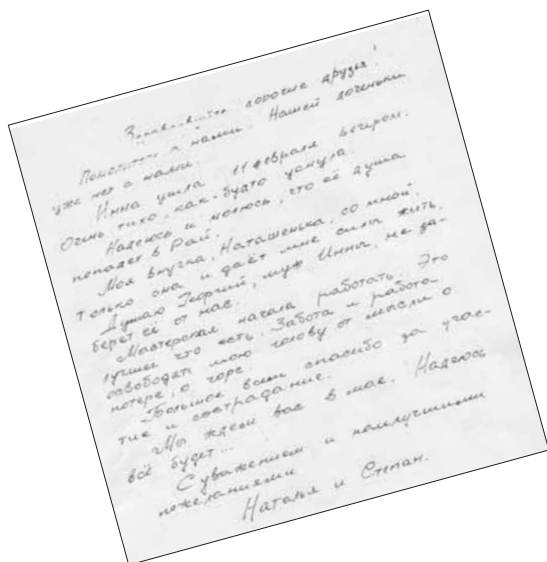 Здравствуйте дорогие друзья!
Помолитесь с нами. Нашей доченьки
уже нет с нами.
Инна ушла 11 февраля вечером.
Очень тихо, как-будто уснула.
Надеюсь и молюсь, что её душа
попадёт в Рай.
Моя внучка, Наташенька, со мной.
Только она и даёт мне силы жить.
Думаю Георгий, муж Инны, не за-
берет её от нас.
Мастерская начала работать. Это
лучшее что есть. Забота и работа
освободят мою голову от мысли о
потере, о горе.
Большое всем спасибо за учас-
тие и сострадание.
Мы ждем вас в мае. Надеюсь
всё будет...
С уважением и наилучшими
пожеланиями
Наталья и Степан.